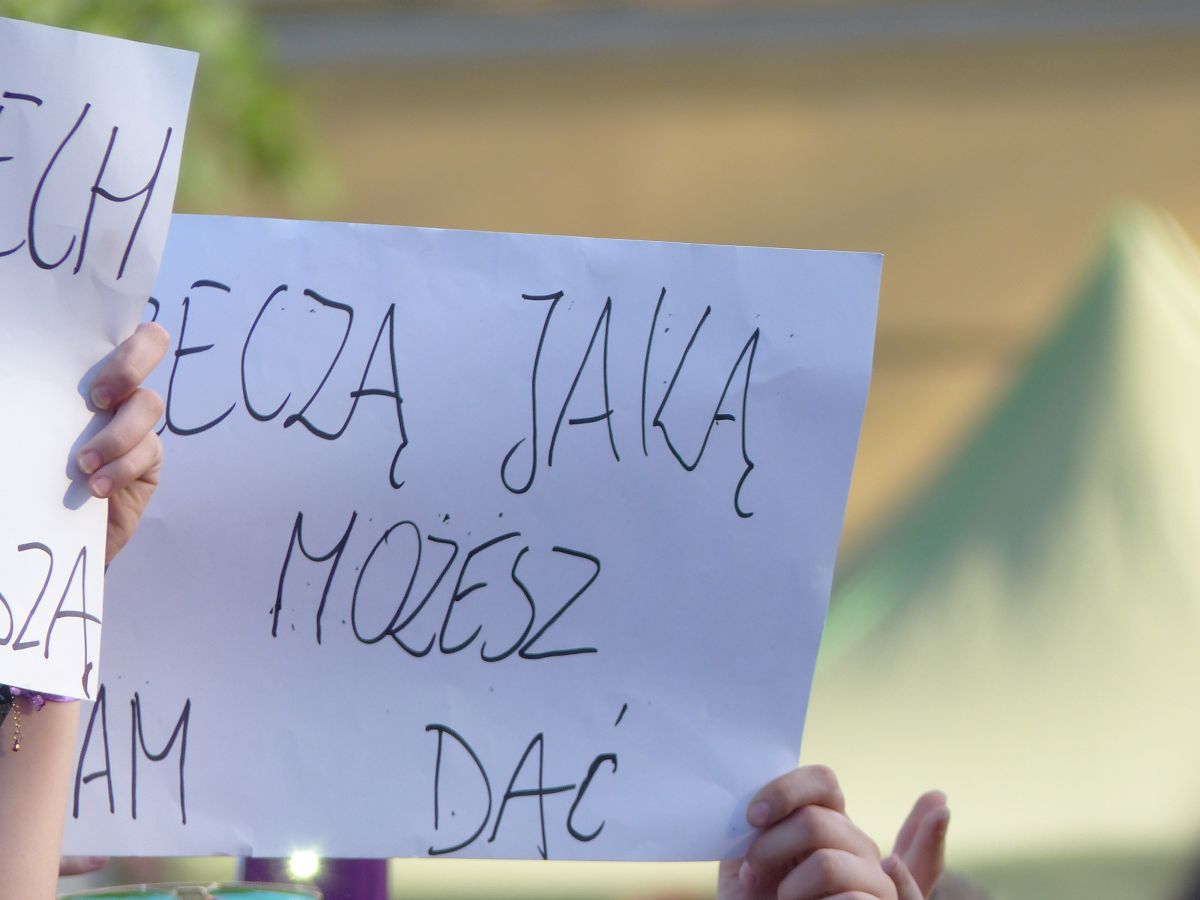 ECH
SZĄ
RZECZĄ JAKĄ
MOŻESZ
AM DAĆ